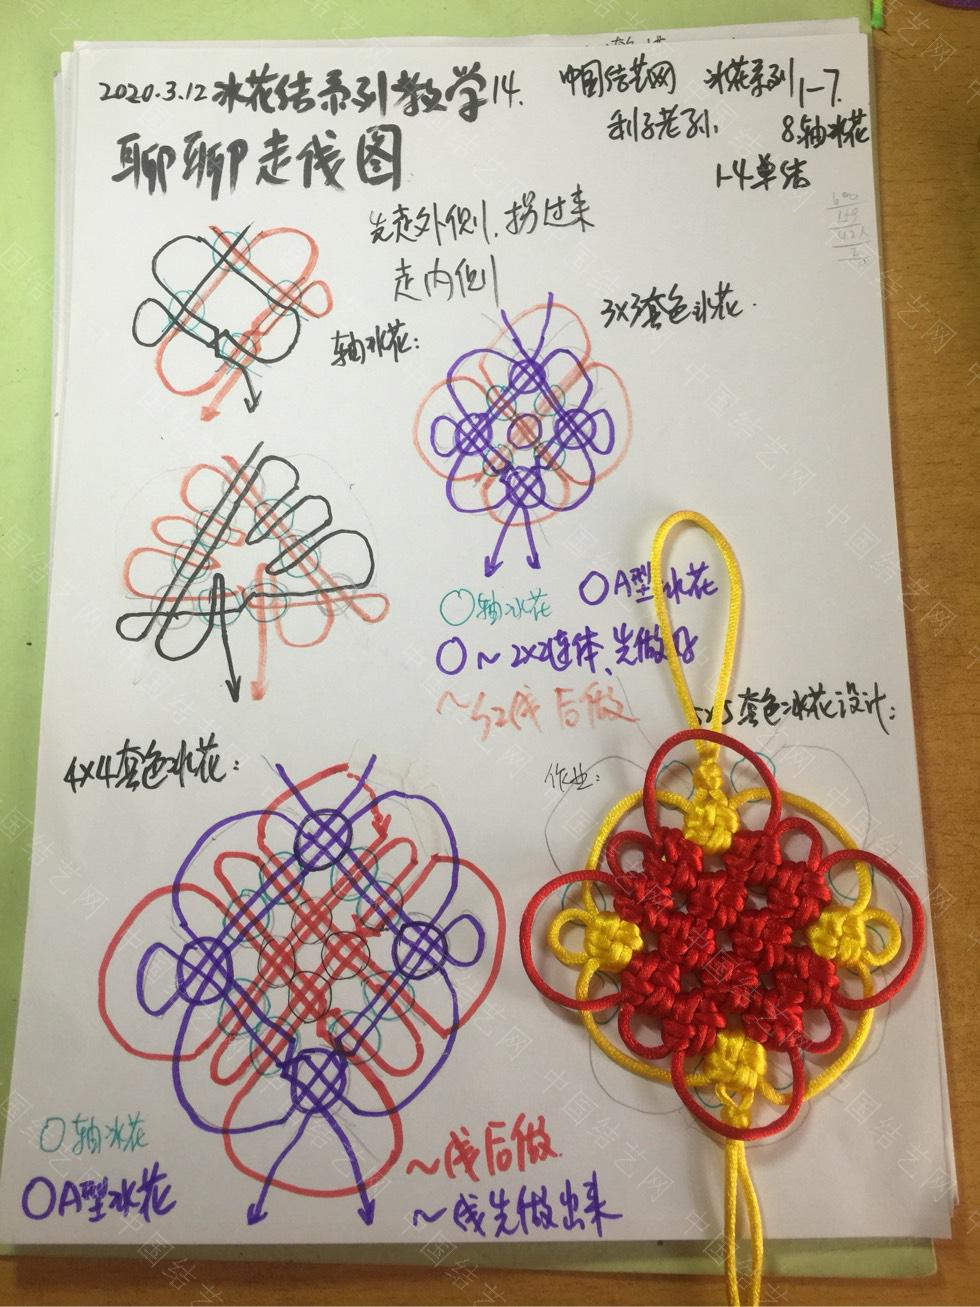 2020.3.12冰花结系列教学14.
中国结艺网 冰花系列1-7.
利子老列.
8.轴冰花
1-4单结
聊聊走线图
先走外侧.拐过来
走内侧
轴冰花:
3×3套色冰花.
轴冰花
A型冰花
~2×2连体、先做好
~红线后做
4×4套色冰花:
5×5套色冰花设计:
作业:
轴冰花
A型冰花
~线后做
~线先做出来
中国结艺网